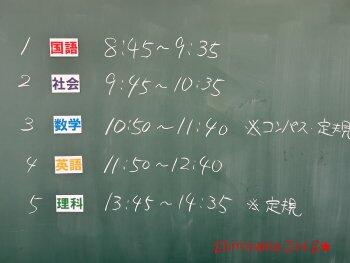 1 国語 8:45～9:35
2 社会 9:45～10:35
3 数学 10:50～11:40 ※コンパス・定規
4 英語 11:50～12:40
5 理科 13:45～14:35 ※定規